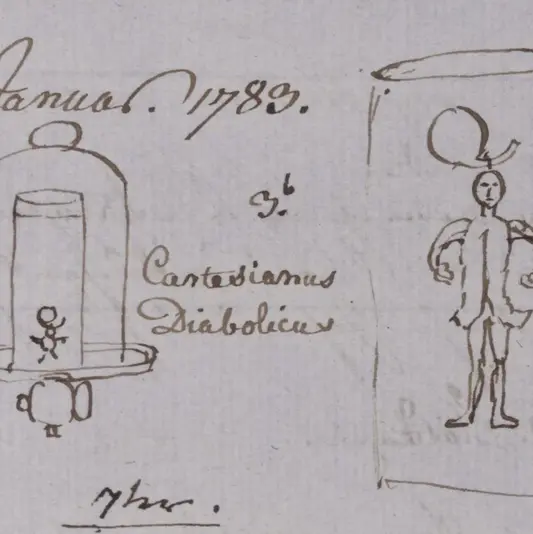 Januar. 1783.
3.b
Cartesianus
Diabolicus
7br.